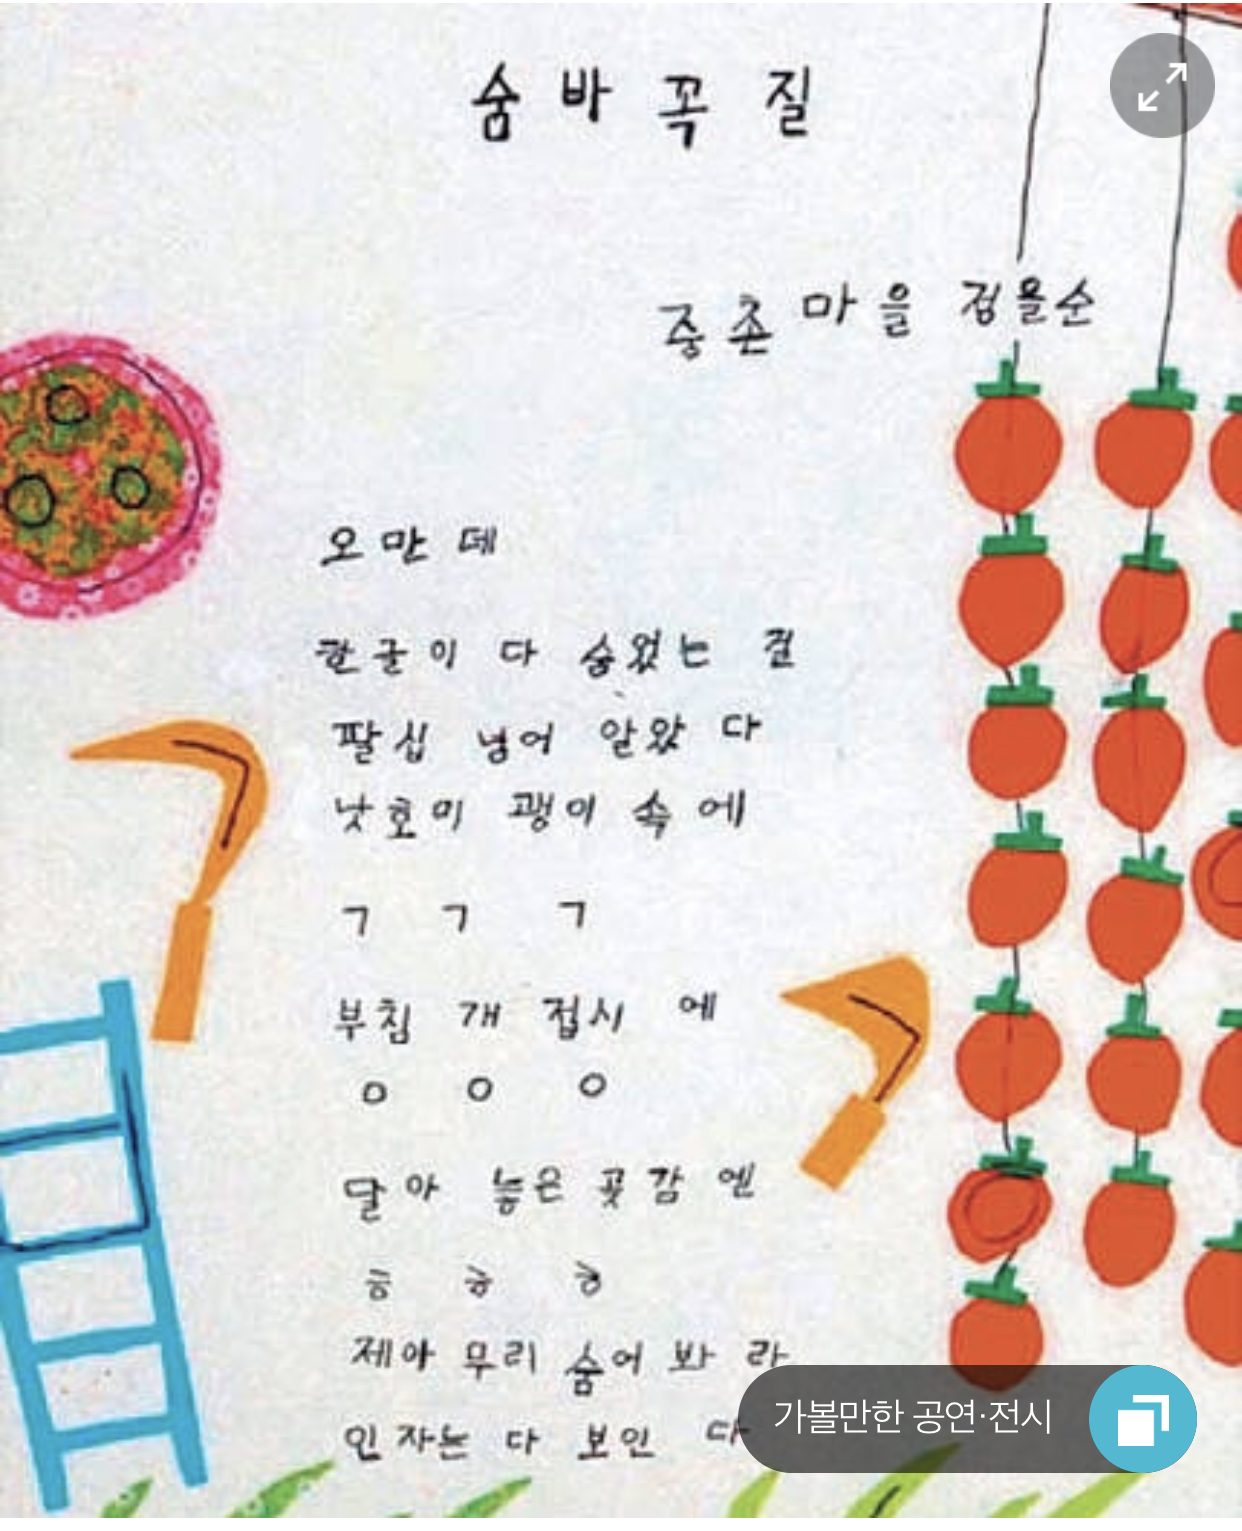 숨바꼭질
중촌마을 정을순
오만데
한글이 다 숨었는 걸
팔십 넘어 알았다
낫호미 괭이 속에
ㄱ ㄱ ㄱ
부침개 접시에
ㅇ ㅇ ㅇ
달아 놓은 곶감엔
ㅎ ㅎ ㅎ
제아무리 숨어봐라
인자는 다 보인다
가볼만한 공연·전시